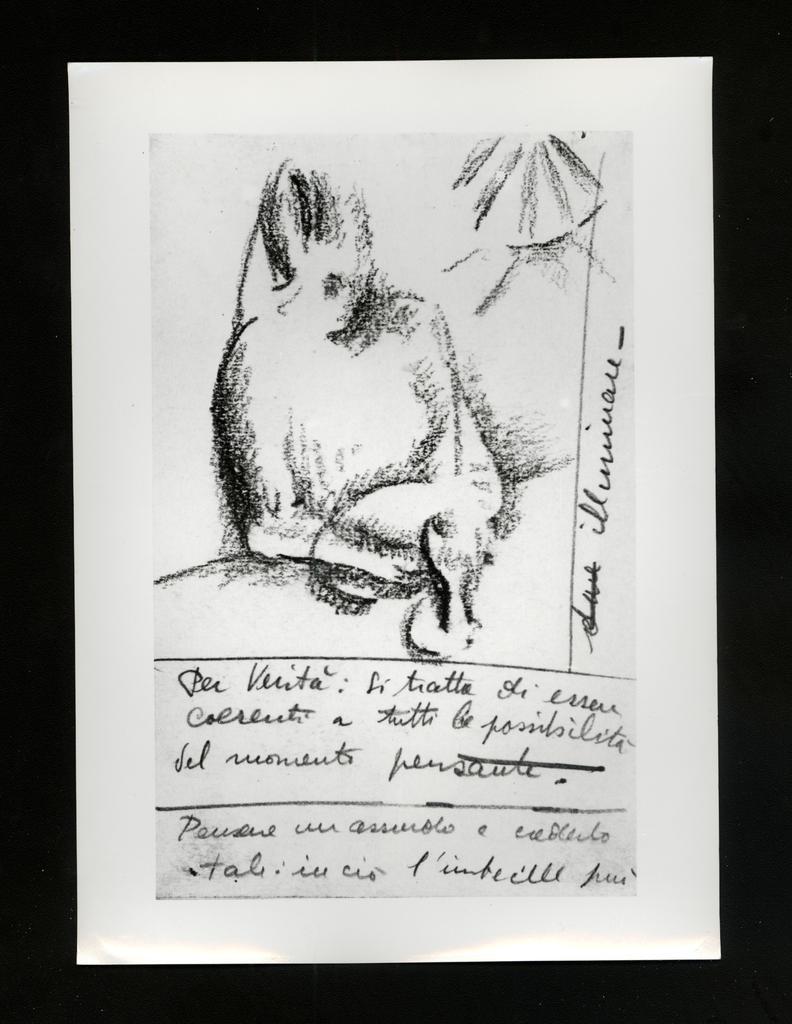 illuminare —
Per Verità: Si tratta di essere
coerenti a tutti le possibilità
del momento pensante.
Pensare un assurdo e crederlo
tale: in ciò l'imbecille può